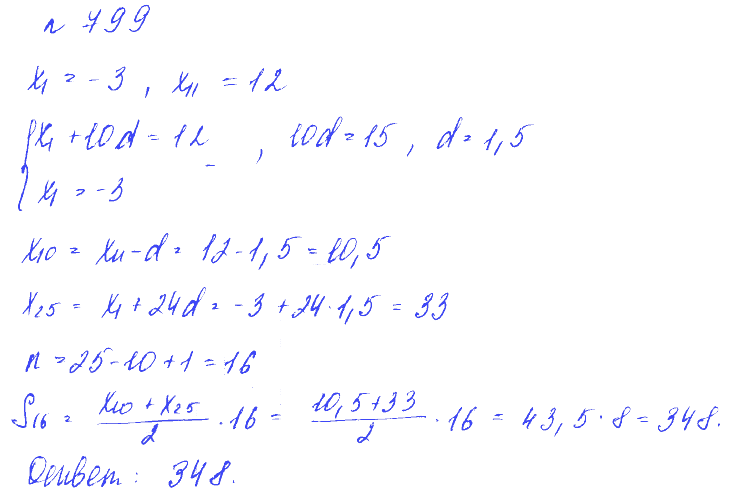 n 799
x₁ = -3, x₁₁ = 12
{ x₁ + 10d = 12 , 10d = 15, d = 1,5
x₁ = -3
x₁₀ = x₁₁ - d = 12 - 1,5 = 10,5
x₂₅ = x₁ + 24d = -3 + 24·1,5 = 33
n = 25 - 10 + 1 = 16
S₁₆ = (x₁₀ + x₂₅)/2 · 16 = (10,5 + 33)/2 · 16 = 43,5 · 8 = 348.
Ответ: 348.